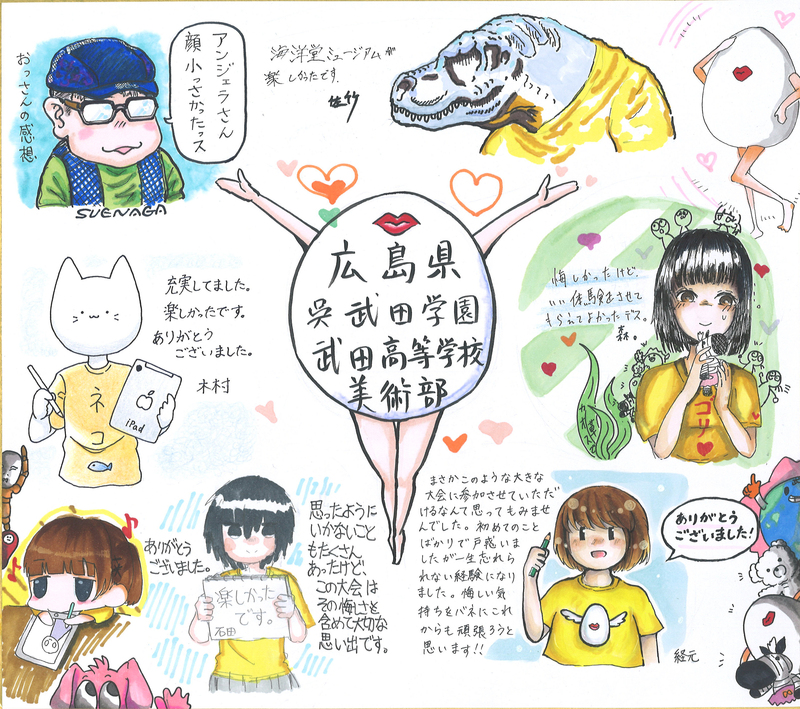 おっさんの感想
アンジェラさん
顔小っさかったッス
SUENAGA
海洋堂ミュージアムが
楽しかったです。
広島県
呉武田学園
武田高等学校
美術部
充実してました。
楽しかったです。
ありがとう
ございました。
木村
ネコ
iPad
悔しかったけど、
いい体験をさせて
もらえてよかったデス。
森。
ゴリ
ありがとう
ございました。
楽しかった
です。
石田
思ったように
いかないこと
もたくさん
あったけど、
この大会は
その悔しさを
含めて大切な
思い出です。
まさかこのような大きな
大会に参加させていただ
けるなんて思ってもみませ
んでした。初めてのこと
ばかりで戸惑いま
したが一生忘れら
れない経験になり
ました。悔しい気
持ちをバネにこれ
からも頑張ろうと
思います!!
経元
ありがとう
ございました!